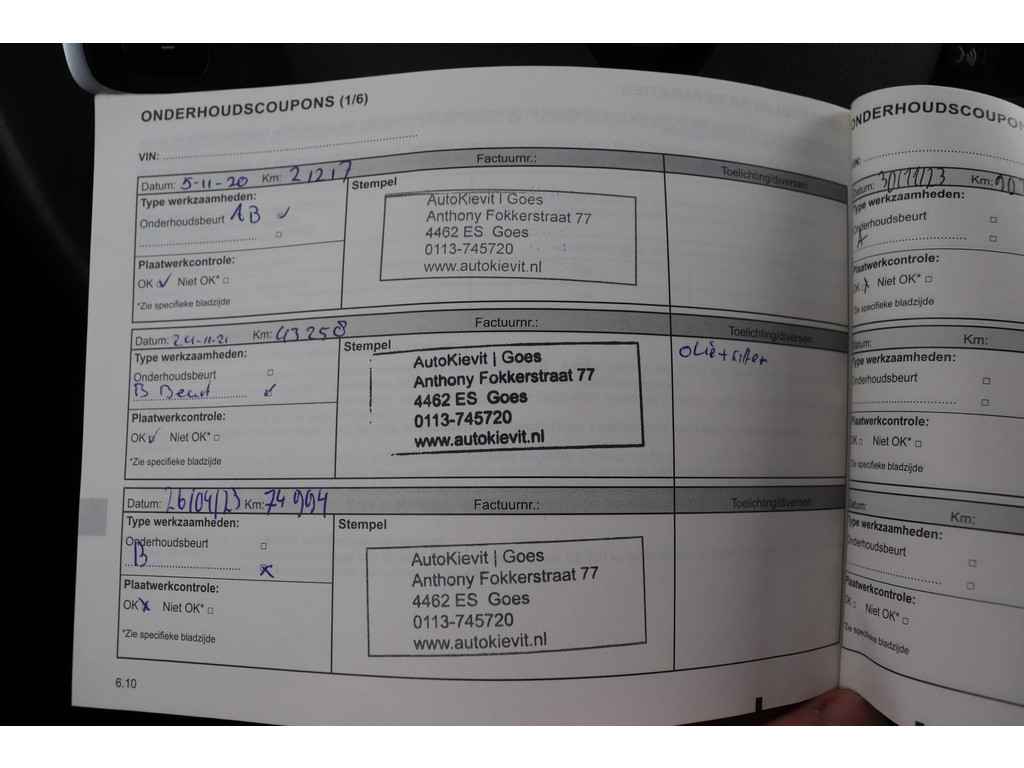 ONDERHOUDSCOUPONS (1/6)
VIN:
Datum: 5-11-20 Km: 21217 Factuurnr.: Toelichting/diversen
Type werkzaamheden:
Onderhoudsbeurt 1B ✓
Plaatwerkcontrole:
OK ✓ Niet OK* □
*Zie specifieke bladzijde
Stempel
AutoKievit | Goes
Anthony Fokkerstraat 77
4462 ES Goes
0113-745720
www.autokievit.nl
Datum: 24-11-21 Km: 43258 Factuurnr.: Toelichting/diversen
Type werkzaamheden:
Onderhoudsbeurt □
B Beurt ✓
Plaatwerkcontrole:
OK ✓ Niet OK* □
*Zie specifieke bladzijde
Stempel
AutoKievit | Goes
Anthony Fokkerstraat 77
4462 ES Goes
0113-745720
www.autokievit.nl
Olie + Filter
Datum: 26/04/23 Km: 74994 Factuurnr.: Toelichting/diversen
Type werkzaamheden:
Onderhoudsbeurt □
B x
Plaatwerkcontrole:
OK x Niet OK* □
*Zie specifieke bladzijde
Stempel
AutoKievit | Goes
Anthony Fokkerstraat 77
4462 ES Goes
0113-745720
www.autokievit.nl
6.10
ONDERHOUDSCOUPON
Datum: 30/11/23 Km: 90
Type werkzaamheden:
Onderhoudsbeurt □
A □
Plaatwerkcontrole:
OK x Niet OK* □
*Zie specifieke bladzijde
Datum: Km:
Type werkzaamheden:
Onderhoudsbeurt □
Plaatwerkcontrole:
OK □ Niet OK* □
*Zie specifieke bladzijde
Datum: Km:
Type werkzaamheden:
Onderhoudsbeurt □
Plaatwerkcontrole:
OK □ Niet OK* □
*Zie specifieke bladzijde